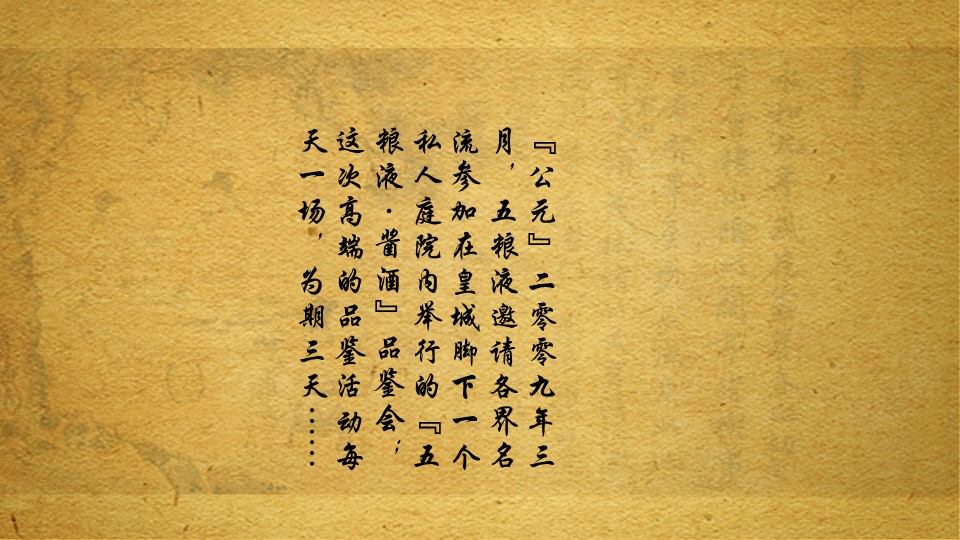 『公元』二零零九年三
月，五粮液邀请各界名
流参加在皇城脚下一个
私人庭院内举行的『五
粮液·酱酒』品鉴会；
这次高端的品鉴活动每
天一场，为期三天……